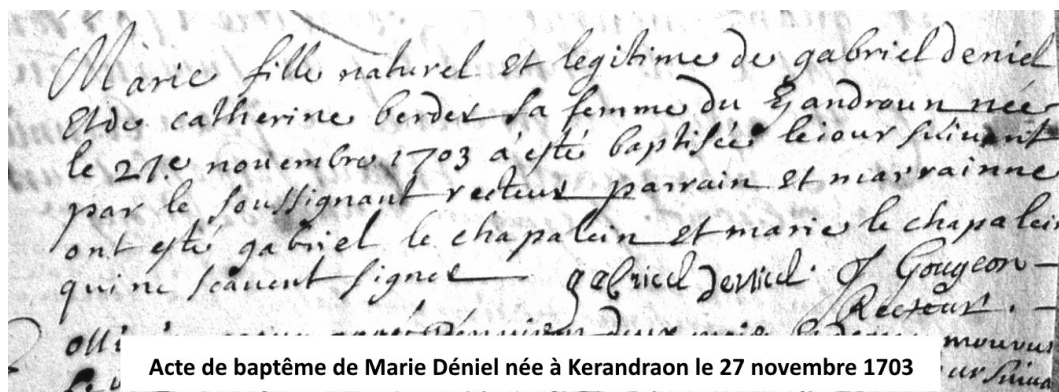 Marie fille naturel et legitime de gabriel deniel
et de catherine berder sa femme du Kandraun née
le 27.e novembre 1703 à esté baptisée le iour suivant
par le soussignant recteur parrain et marrainne
ont esté gabriel le chapalein et marie le chapalein
qui ne scavent signer gabriel deniel. J Gougeon
Recteur.
Acte de baptême de Marie Déniel née à Kerandraon le 27 novembre 1703